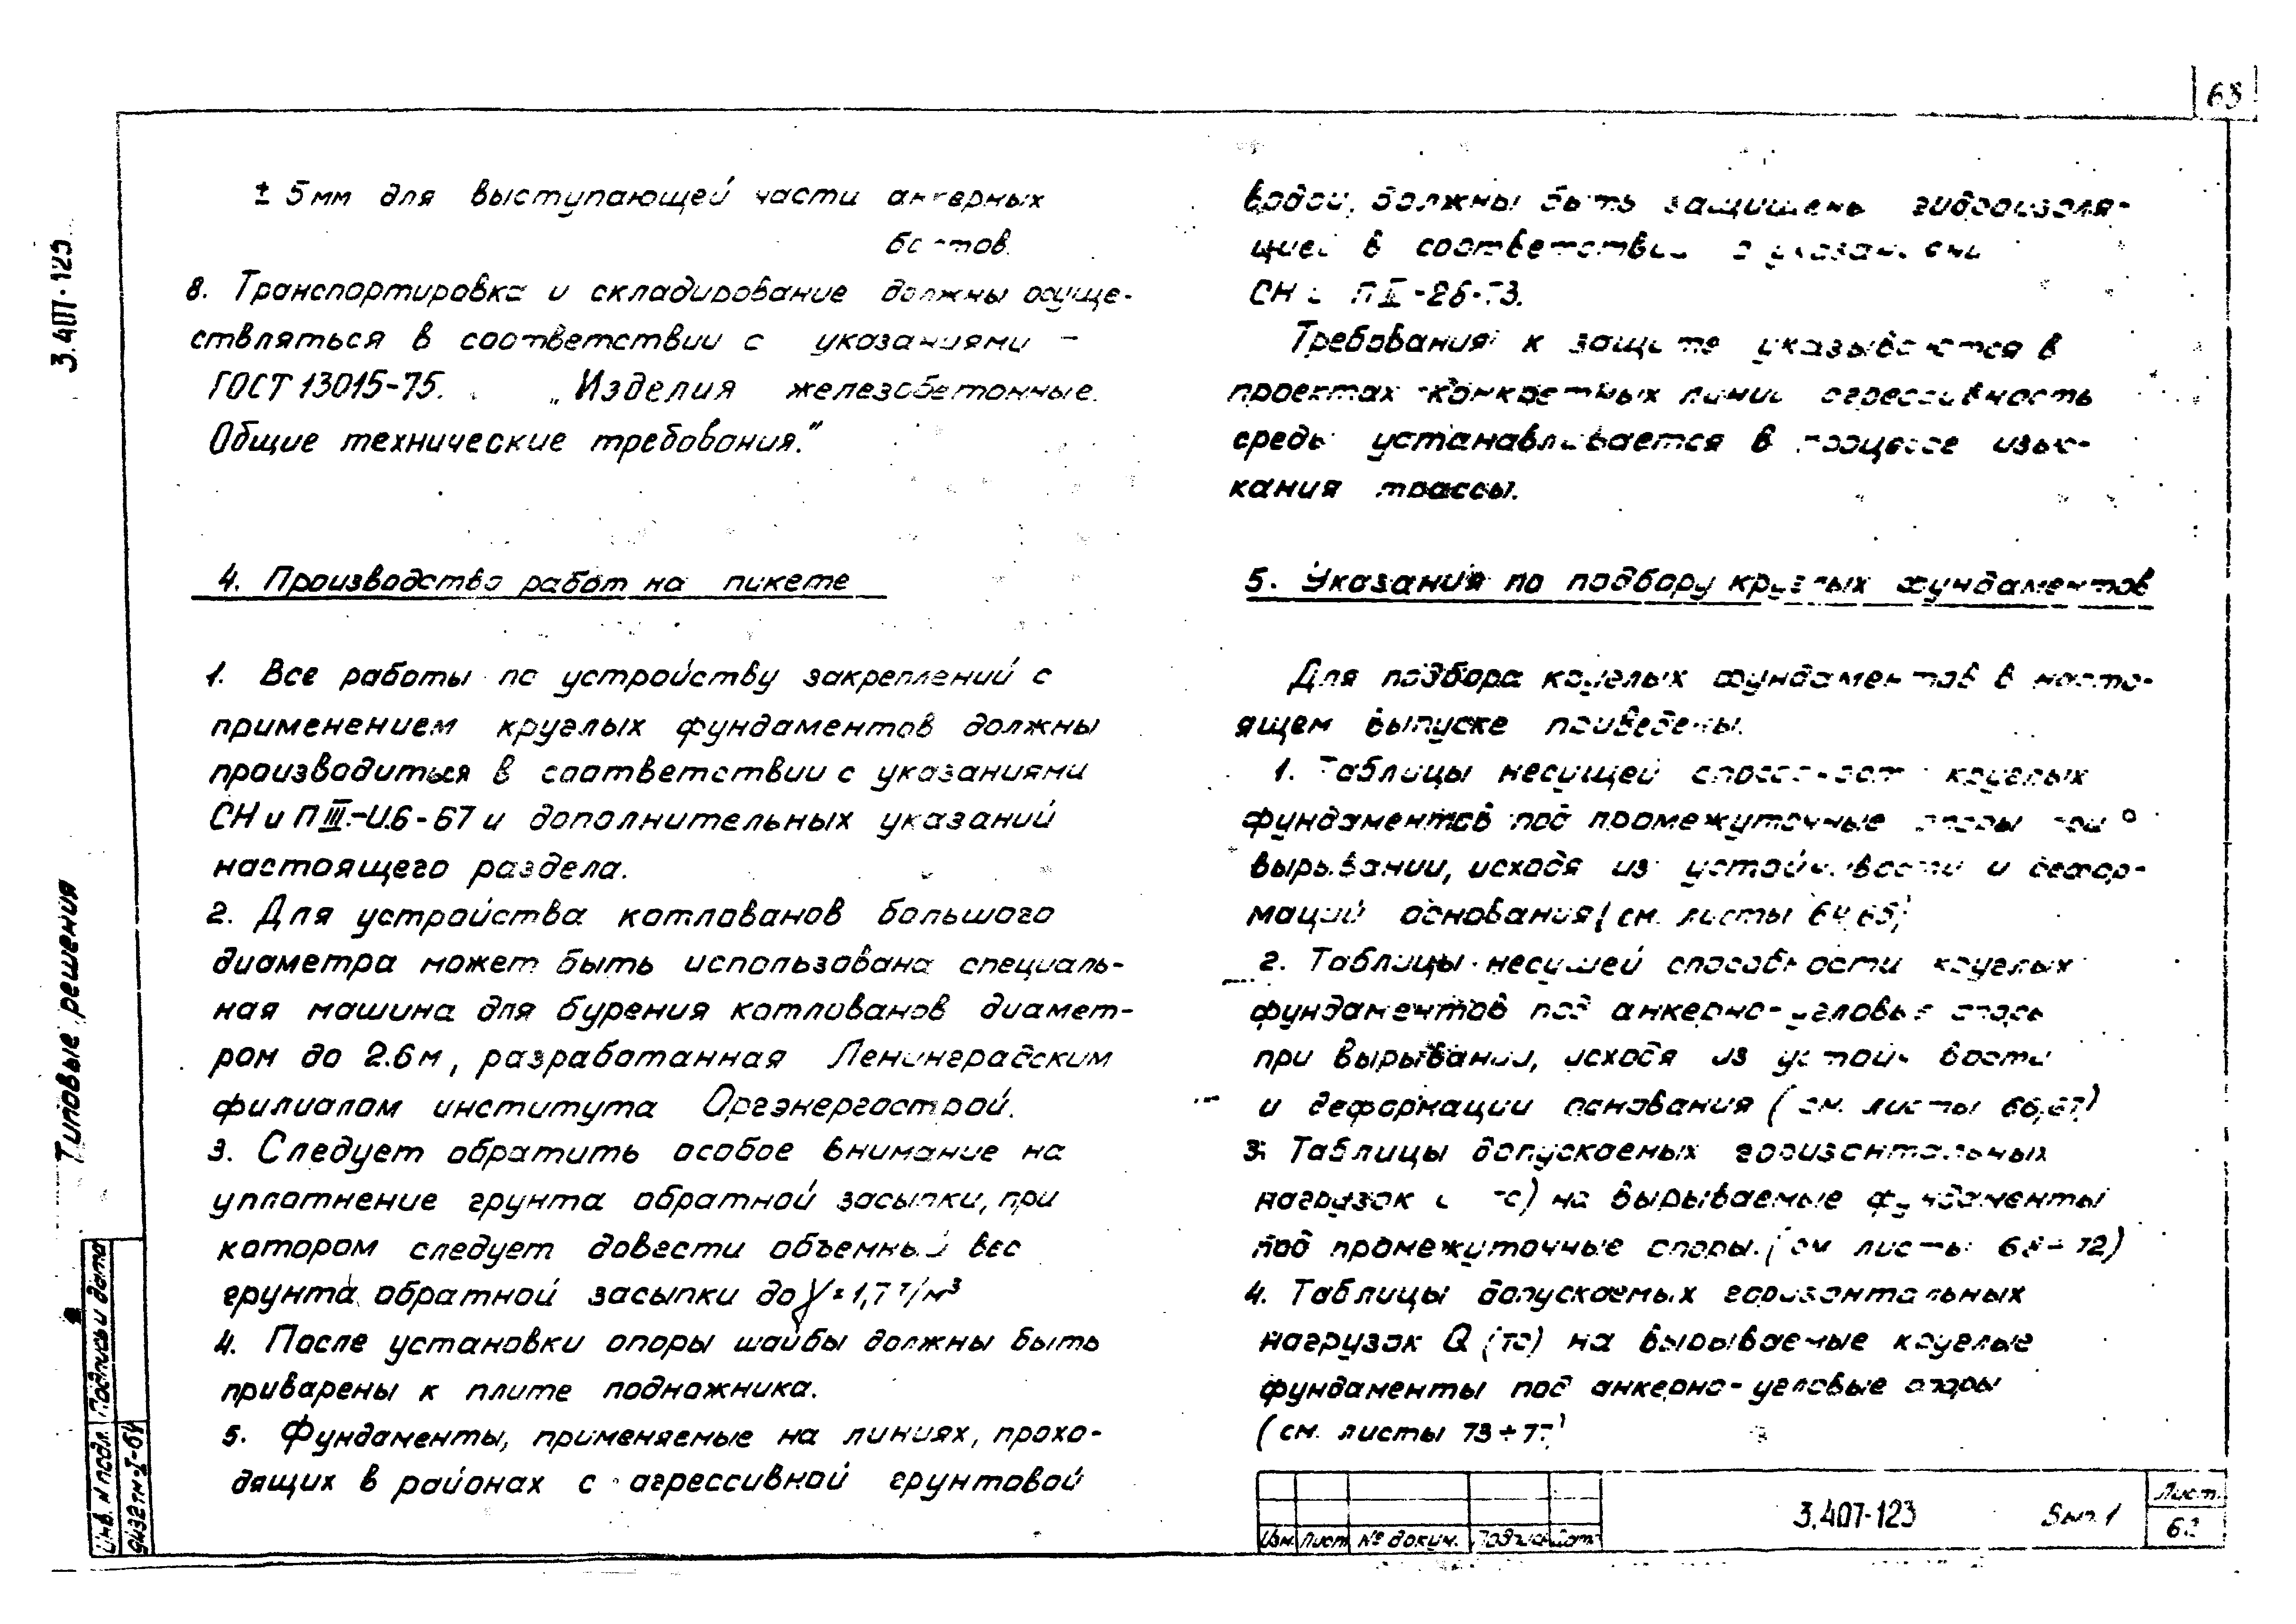 63
± 5мм для выступающей части анкерных
болтов.
8. Транспортировка и складирование должны осуще-
ствляться в соответствии с указаниями -
ГОСТ 13015-75. „Изделия железобетонные.
Общие технические требования.”
4. Производство работ на пикете
1. Все работы по устройству закреплений с
применением круглых фундаментов должны
производиться в соответствии с указаниями
СН и П III.-И.6-67 и дополнительных указаний
настоящего раздела.
2. Для устройства котлованов большого
диаметра может быть использована специаль-
ная машина для бурения котлованов диамет-
ром до 2.6м, разработанная Ленинградским
филиалом института Оргэнергострой.
3. Следует обратить особое внимание на
уплотнение грунта обратной засыпки, при
котором следует довести объемный вес
грунта обратной засыпки до γ=1,7 т/м³
4. После установки опоры шайбы должны быть
приварены к плите подножника.
5. Фундаменты, применяемые на линиях, прохо-
дящих в районах с агрессивной грунтовой
водой, должны быть защищены гидроизоля-
цией в соответствии с указаниями
СН и П II-28-73.
Требования к защите указываются в
проектах конкретных линий агрессивность
среды устанавливается в процессе изыс-
кания трассы.
5. Указания по подбору круглых фундаментов
Для подбора круглых фундаментов в насто-
ящем выпуске приведены.
1. Таблицы несущей способности круглых
фундаментов под промежуточные опоры при
вырывании, исходя из устойчивости и дефор-
маций основания (см. листы 64,65)
2. Таблицы несущей способности круглых
фундаментов под анкерно-угловые опоры
при вырывании, исходя из устойчивости
и деформации основания (см. листы 66,67)
3. Таблицы допускаемых горизонтальных
нагрузок (тс) на вырываемые фундаменты
под промежуточные опоры. (см листы 68÷72)
4. Таблицы допускаемых горизонтальных
нагрузок Q (тс) на вырываемые круглые
фундаменты под анкерно-угловые опоры
(см. листы 73÷77)
3.407-123
Типовые решения
Инв. N подл. Подпись и дата
9432тм-I-64
Изм. Лист № докум. Подпись Дата
3.407-123 Вып. 1
Лист